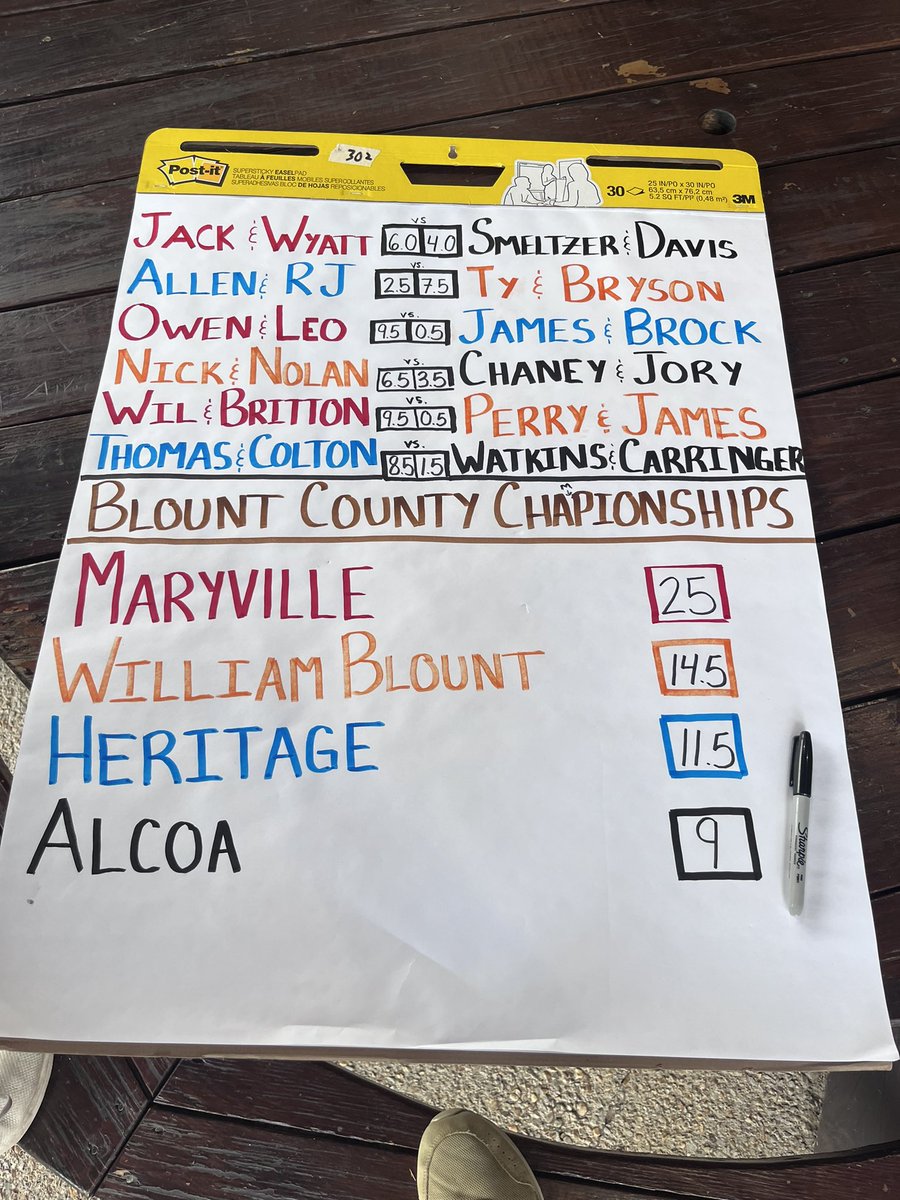 Post-it
SUPERSTICKY EASELPAD
TABLEAU À FEUILLES MOBILES SUPERCOLLANTES
SUPERADHESIVAS BLOC DE HOJAS REPOSICIONABLES
302
30
25 IN/PO x 30 IN/PO
63,5 cm x 76,2 cm
5.2 SQ FT/PP (0,48 m²)
3M
JACK & WYATT 6.0 VS 4.0 SMELTZER & DAVIS
ALLEN & RJ 2.5 VS. 7.5 TY & BRYSON
OWEN & LEO 9.5 VS. 0.5 JAMES & BROCK
NICK & NOLAN 6.5 VS. 3.5 CHANEY & JORY
WIL & BRITTON 9.5 VS. 0.5 PERRY & JAMES
THOMAS & COLTON 8.5 VS. 1.5 WATKINS & CARRINGER
BLOUNT COUNTY CHAMPIONSHIPS
MARYVILLE 25
WILLIAM BLOUNT 14.5
HERITAGE 11.5
ALCOA 9
Sharpie